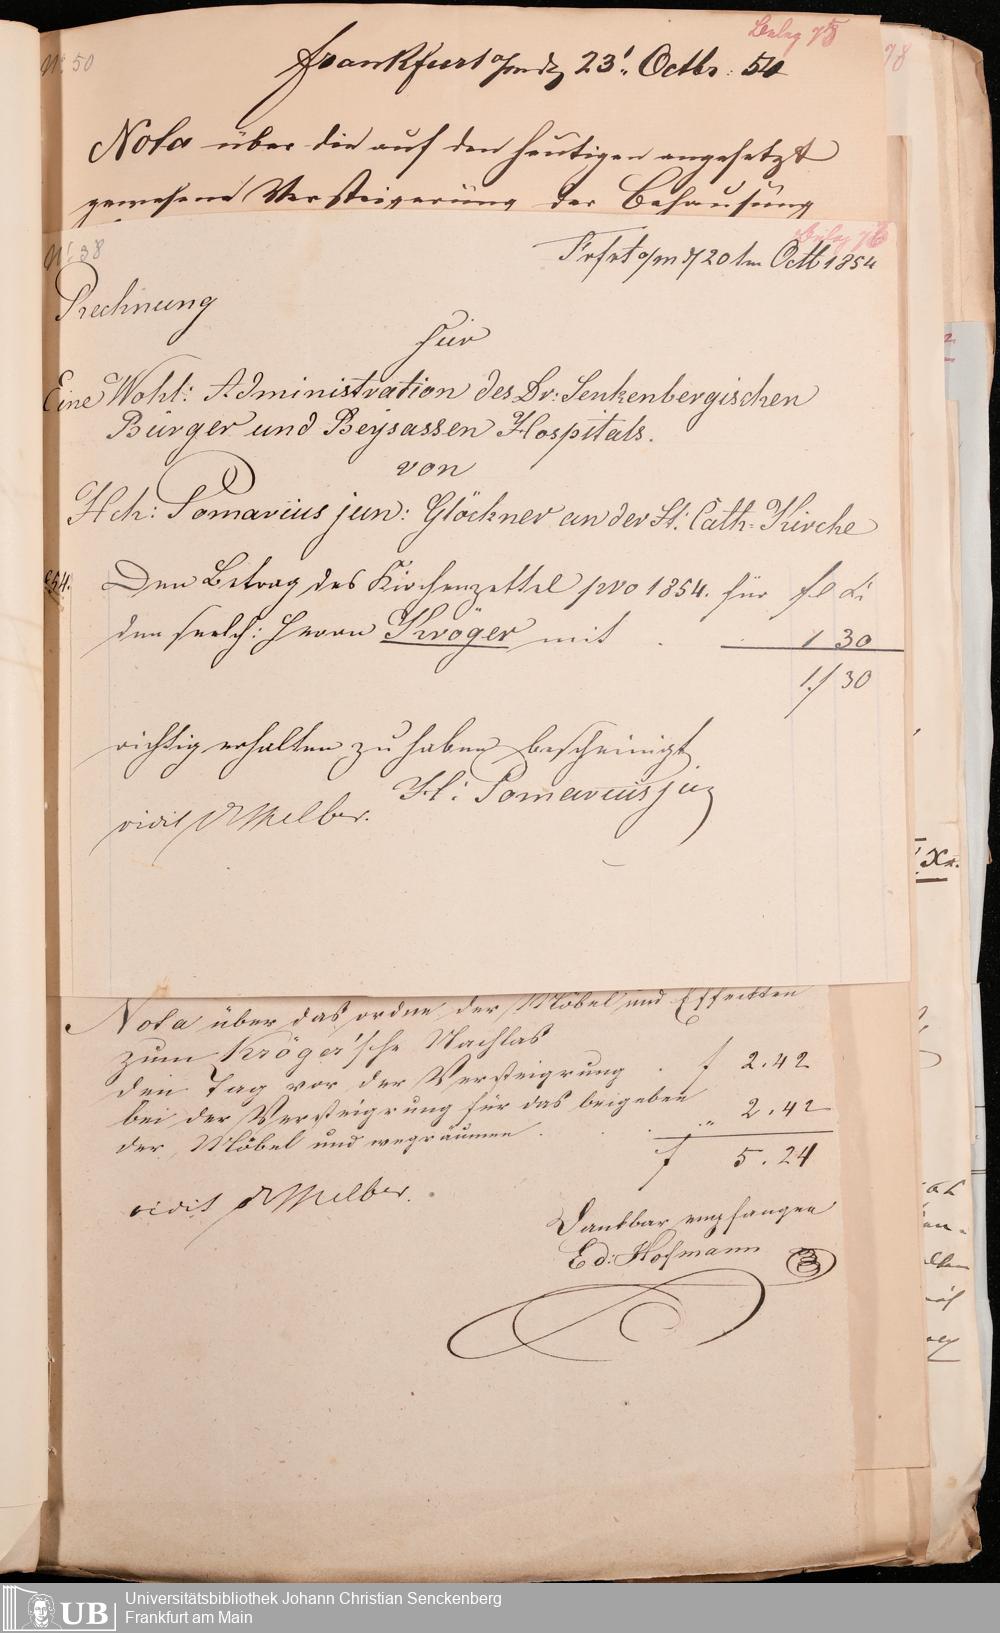 Beleg 78
No 50
Frankfurt a/m d 23t. Octbr: 54
Nota über die auf den heutigen angesetzt
gewesene Versteigerung der Behausung
Beleg 76
No 38
Frfrt a/m d 20ten Octb 1854
Rechnung
für
Eine Wohl: Administration des Dr: Senkenbergischen
Bürger und Beysassen Hospitals.
von
Hch: Pomarius jun: Glöckner an der St: Cath: Kirche
Den Betrag des Kirchenzettel pro 1854. für fl xr
den seelg: Herrn Kröger mit . . 1 30
1 f 30
richtig erhalten zu haben bescheinigt
H: Pomarius jun
vidit Dr Melber.
Nota über das ordne der Möbel und Effeckten
zum Kröger'sche Nachlas
den Tag vor der Versteigrung . f 2.42
bei der Versteigrung für das beigeben
der Möbel und wegräumen . . . " 2.42
f 5.24
vidit Dr Melber.
Dankbar empfangen
Ed: Hofmann
78
Xr.
UB
Universitätsbibliothek Johann Christian Senckenberg
Frankfurt am Main